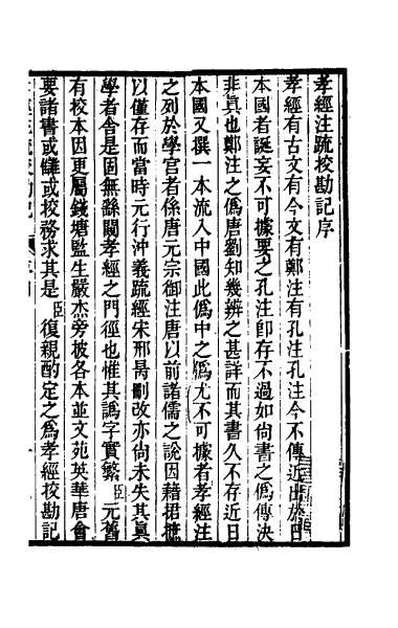 孝經注疏校勘記序
孝經有古文有今文有鄭注有孔注孔注今不傳近出於日
本國者誕妄不可據要之孔注即存不過如尚書之偽傳決
非真也鄭注之偽唐劉知幾辨之甚詳而其書久不存近日
本國又撰一本流入中國此偽中之偽尤不可據者孝經注
之列於學官者係唐元宗御注唐以前諸儒之說因藉捃摭
以僅存而當時元行沖義疏經宋邢昺刪改亦尚未失其真
學者舍是固無繇闚孝經之門徑也惟其譌字實繁臣元舊
有校本因更屬錢塘監生嚴杰旁披各本並文苑英華唐會
要諸書或讎或校務求其是臣復親酌定之為孝經校勘記